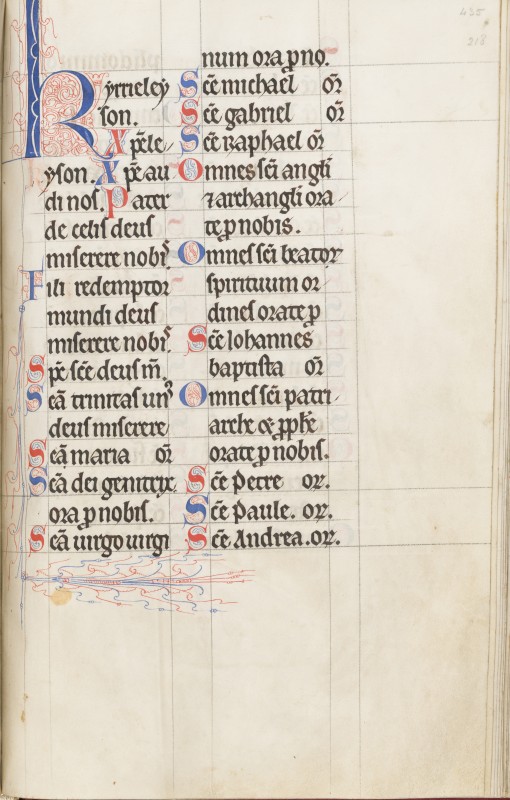 435
218
Kyrrieley
son.
Xp̄e le
yson. Xp̄e au
di nos. Pater
de celis deus
miserere nobis
Fili redemptor
mundi deus
miserere nobis.
Sp̄c sc̄e deus m̄.
Sc̄a trinitas unꝰ
deus miserere
Sc̄a maria or̄
Sc̄a dei genitrix
ora ꝓ nobis.
Sc̄a uirgo uirgi
num ora ꝓ no.
Sc̄e michael or̄
Sc̄e gabriel or̄
Sc̄e Raphael or̄
Omnes sc̄i angli
⁊ archangli ora
te ꝓ nobis.
Omnes sc̄i beatoꝝ
spirituum or
dines orate ꝓ
Sc̄e Iohannes
baptista or̄
Omnes sc̄i patri
arche & ꝓph̄e
orate ꝓ nobis.
Sc̄e Petre or.
Sc̄e Paule. or.
Sc̄e Andrea. or.